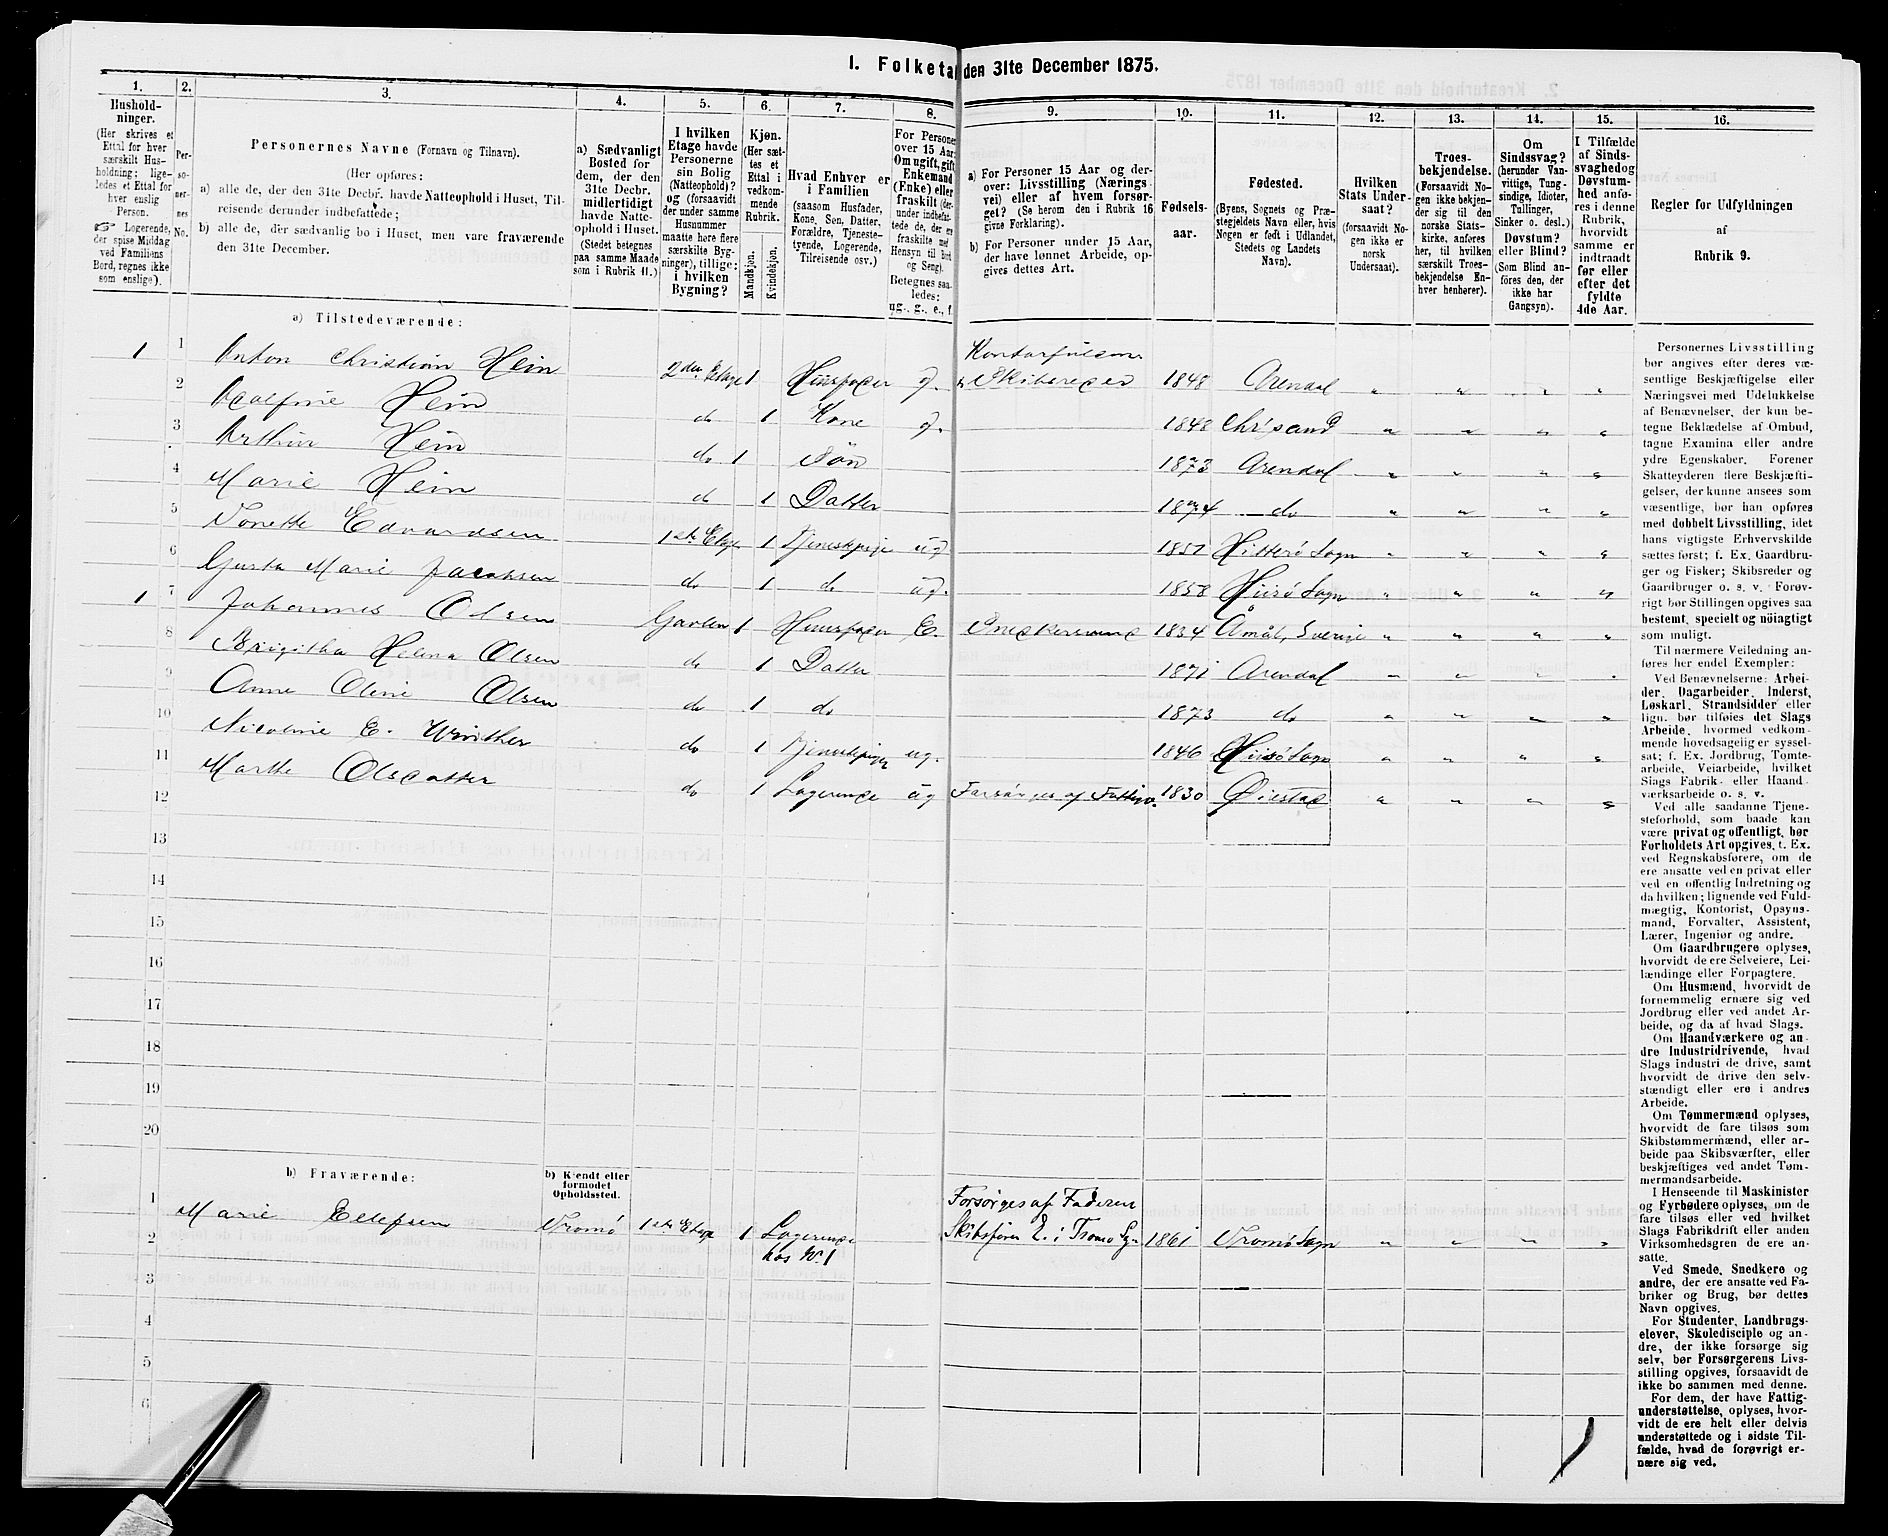 I. Folketal den 31te December 1875.
1.
Hushold-
ninger.
(Her skrives et
Ettal for hver
særskilt Hus-
holdning; lige-
ledes et Ettal for
hver enslig
Person.
☞ Logerende,
der spise Middag
ved Familiens
Bord, regnes ikke
som enslige).
2.
Per-
so-
ner-
nes
No.
3.
Personernes Navne (Fornavn og Tilnavn).
(Her opføres:
a) alle de, der den 31te Decbr. havde Natteophold i Huset, Til-
reisende derunder indbefattede;
b) alle de, der sædvanlig bo i Huset, men vare fraværende
den 31te December.
4.
a) Sædvanligt
Bosted for
dem, der den
31te Decbr.
midlertidigt
havde Natte-
ophold i Huset.
(Stedet betegnes
paa samme Maade
som i Rubrik 11.)
5.
I hvilken
Etage havde
Personerne
sin Bolig
(Natteophold)?
og (forsaavidt
der under samme
Husnummer
maatte høre flere
særskilte Byg-
ninger), tillige:
i hvilken
Bygning?
6.
Kjøn.
(Her sæt-
tes et
Ettal i
vedkom-
mende
Rubrik.
Mandkjøn.
Kvindekjøn.
7.
Hvad Enhver er
i Familien
(saasom Husfader,
Kone, Søn, Datter,
Forældre, Tjeneste-
tyende, Logerende,
Tilreisende osv.)
8.
For Personer
over 15 Aar:
Om ugift, gift
Enkemand
(Enke) eller
fraskilt (der-
under indbefat-
tede de, der ere
fraskilte med
Hensyn til Bord
og Seng).
Betegnes saa-
ledes:
ug., g., e., f.
9.
a) For Personer 15 Aar og der-
over: Livsstilling (Nærings-
vei) eller af hvem forsør-
get? (Se herom den i Rubrik 16
givne Forklaring).
b) For Personer under 15 Aar,
der have lønnet Arbeide, op-
gives dettes Art.
10.
Fødsels-
aar.
11.
Fødested.
(Byens, Sognets og Præ-
stegjeldets Navn eller, hvis
Nogen er født i Udlandet,
Stedets og Landets
Navn).
12.
Hvilken
Stats Under-
saat?
(forsaavidt No-
gen ikke er
norsk
Undersaat).
13.
Troes-
bekjendelse.
(Forsaavidt No-
gen ikke bekjen-
der sig til den
norske Stats-
kirke, anføres
her, til hvilken
særskilt Troes-
bekjendelse En-
hver henhører).
14.
Om
Sindssvag?
(herunder Van-
vittige, Tung-
sindige, Idioter,
Tullinger,
Sinker o. desl.)
Døvstum?
eller Blind?
(Som Blind an-
føres den, der
ikke har
Gangsyn).
15.
I Tilfælde
af Sinds-
svaghed og
Døvstum-
hed anfø-
res i denne
Rubrik,
hvorvidt
samme er
indtraadt
før eller
efter det
fyldte
4de Aar.
16.
Regler for Udfyldningen
af
Rubrik 9.
a) Tilstedeværende:
1 1 Anton Christian Hein 2den Etage 1 Huusfader g. Kontorfuldm.
& Skibsreder 1848 Arendal " " " "
2 Adolfine Hein do 1 Kone g. 1848 Chrisand " " " "
3 Arthur Hein do 1 Søn 1873 Arendal " " " "
4 Marie Hein do 1 Datter 1874 do " " " "
5 Tonette Edvardsen 1ste Etage 1 Tjenestepige ug 1851 Hitterø Sogn " " " "
6 Gusta Marie Jacobsen do 1 do ug. 1858 Hiisø Sogn " " " "
1 7 Johannes Olsen Gaarden 1 Huusfader E. Snedkersvend 1834 Åmål, Sverige " " " "
8 Brigitha Helena Olsen do 1 Datter 1871 Arendal " " " "
9 Anne Oline Olsen do 1 do 1873 do " " " "
10 Nicoline E. Winther do 1 Tjenestepige ug. 1846 Hiisø Sogn " " " "
11 Marthe Olsdatter do 1 Logerende ug Forsørges af Fattigv. 1830 Øiestad " " " "
12
13
14
15
16
17
18
19
20
b) Fraværende:
b) Kjendt eller
formodet
Opholdssted.
1 Marie Ellefsen Tromø 1ste Etage 1 Logerende
hos No. 1
Forsørges af Faderen
Skibsfører E. i Tromø Sgn 1861 Tromø Sogn " " " "
2
3
4
5
6
Personernes Livsstilling
bør angives efter deres væ-
sentlige Beskjæftigelse eller
Næringsvei med Udelukkelse
af Benævnelser, der kun be-
tegne Beklædelse af Ombud,
tagne Examina eller andre
ydre Egenskaber. Forener
Skatteyderen flere Beskjæfti-
gelser, der kunne ansees som
væsentlige, bør han opføres
med dobbelt Livsstilling, idet
hans vigtigste Erhvervskilde
sættes først; f. Ex. Gaardbru-
ger og Fisker; Skibsreder og
Gaardbruger o. s. v. Forøv-
rigt bør Stillingen opgives saa
bestemt, specielt og nøiagtigt
som muligt.
Til nærmere Veiledning an-
føres her endel Exempler:
Ved Benævnelserne: Arbei-
der, Dagarbeider, Inderst,
Løskarl, Strandsidder eller
lign. bør tilføies det Slags
Arbeide, hvormed vedkom-
mende hovedsagelig er syssel-
sat; f. Ex. Jordbrug, Tomte-
arbeide, Veiarbeide, hvilket
Slags Fabrik- eller Haand-
værksarbeide o. s. v.
Ved alle saadanne Tjene-
steforhold, som baade kan
være privat og offentligt, bør
Forholdets Art opgives, t. Ex.
ved Regnskabsførere, om de
ere ansatte ved en privat eller
ved en offentlig Indretning og
da hvilken; lignende ved Fuld-
mægtig, Kontorist, Opsyns-
mand, Forvalter, Assistent,
Lærer, Ingeniør og andre.
Om Gaardbrugere oplyses,
hvorvidt de ere Selveiere, Lei-
lændinge eller Forpagtere.
Om Husmænd, hvorvidt de
fornemmelig ernære sig ved
Jordbrug eller ved andet Ar-
beide, og da af hvad Slags.
Om Haandværkere og an-
dre Industridrivende, hvad
Slags industri de drive, samt
hvorvidt de drive den selv-
stændigt eller ere i andres
Arbeide.
Om Tømmermænd oplyses,
hvorvidt de fare tilsøs som
Skibstømmermænd, eller ar-
beide paa Skibsværfter, eller
beskjæftiges ved andet Tøm-
mermandsarbeide.
I Henseende til Maskinister
og Fyrbødere oplyses, om de
fare tilsøs eller ved hvilket
Slags Fabrikdrift eller anden
Virksomhedsgren de ere an-
satte.
Ved Smede, Snedkere og
andre, der ere ansatte ved Fa-
briker og Brug, bør dettes
Navn opgives.
For Studenter, Landbrugs-
elever, Skoledisciple og an-
dre, der ikke forsørge sig
selv, bør Forsørgerens Livs-
stilling opgives, forsaavidt de
ikke bo sammen med denne.
For dem, der have Fattig-
understøttelse, oplyses, hvor-
vidt de ere helt eller delvis
understøttede og i sidste Til-
fælde, hvad de forøvrigt er-
nære sig ved.